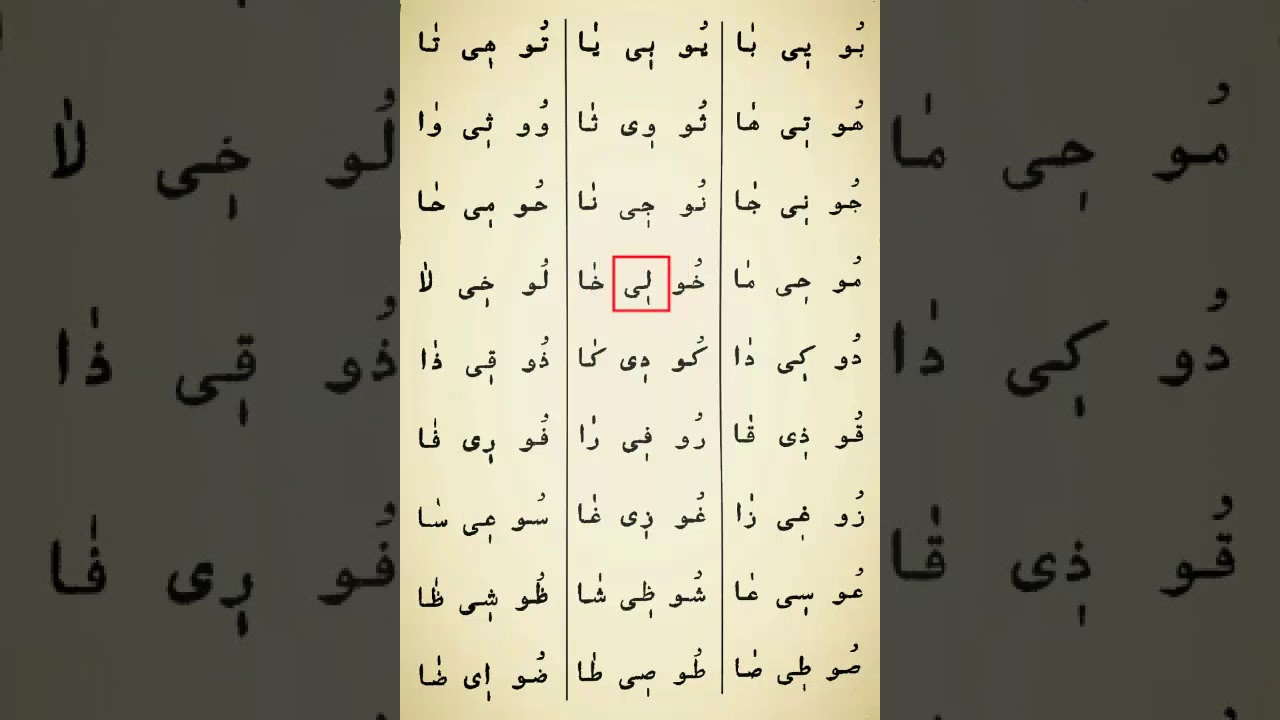 بُو یٖی بٰا یُو بٖی یٰا تُو هٖی تٰا
هُو تٖی هٰا ثُو وٖی ثٰا وُو ثٖی وٰا
جُو نٖی جٰا نُو جٖی نٰا حُو مٖی حٰا
مُو حٖی مٰا خُو لٖی خٰا لُو خٖی لٰا
دُو کٖی دٰا کُو دٖی کٰا ذُو قٖی ذٰا
قُو ذٖی قٰا رُو فٖی رٰا فُو رٖی فٰا
زُو غٖی زٰا غُو زٖی غٰا سُو عٖی سٰا
عُو سٖی عٰا شُو ظٖی شٰا ظُو شٖی ظٰا
صُو طٖی صٰا طُو صٖی طٰا ضُو اٖی ضٰا